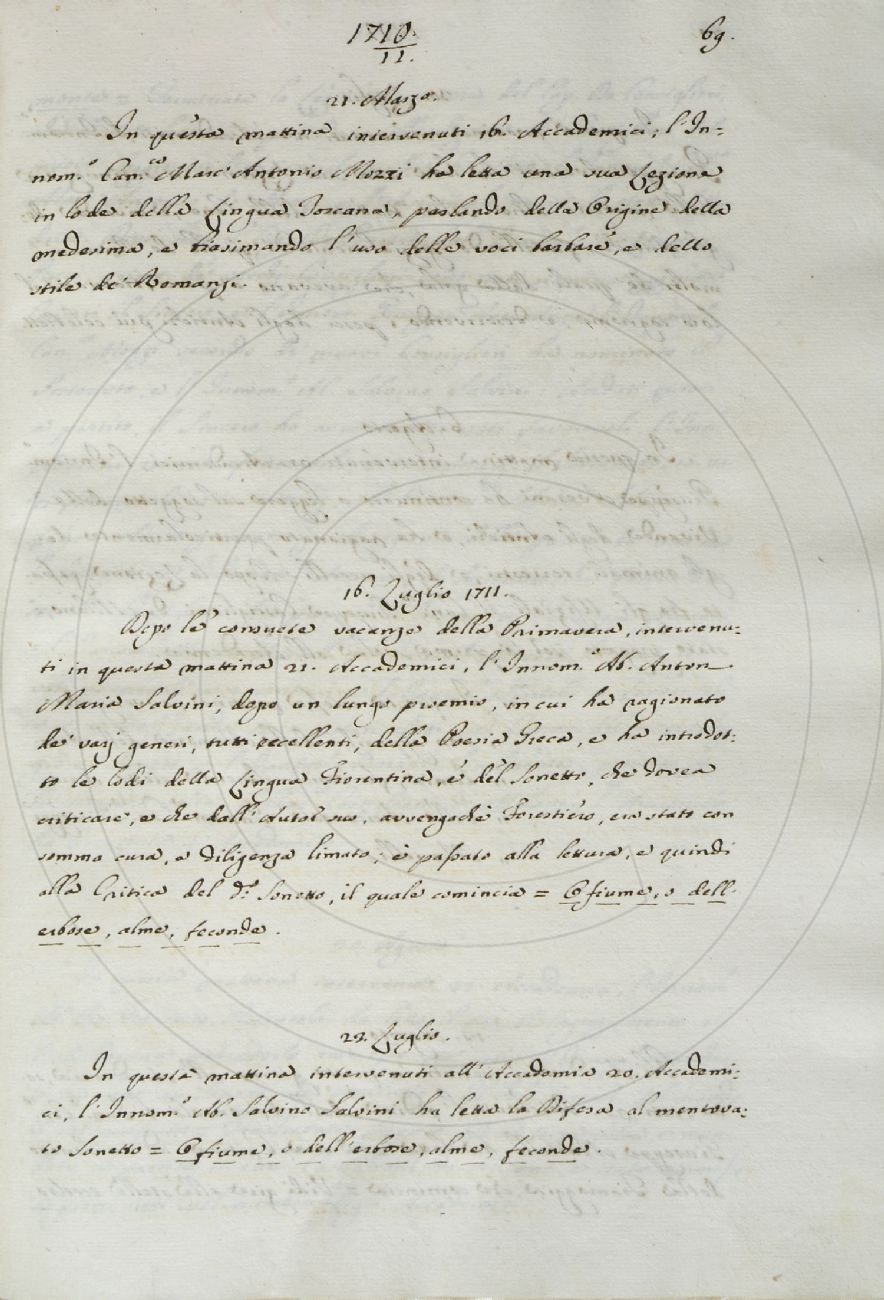 1710. 69.
11.
21. Marzo.
In questa mattina intervenuti 16. Accademici, l'In=
nom.º Can.co Marc'Antonio Mozzi ha letta una sua Lezione
in lode della Lingua Toscana, parlando della Origine della
medesima, e biasimando l'uso delle voci barbare, e dello
stile de' Romanzi.
16. Luglio 1711.
Dopo le consuete vacanze della Primavera, intervenu=
ti in questa mattina 21. Accademici, l'Innom.º Ab. Anton
Maria Salvini, dopo un lungo proemio, in cui ha ragionato
de' varj generi, tutti eccellenti, della Poesia Greca, e ha introdot=
to le lodi della Lingua Fiorentina, e del Sonetto, che dovea
criticare, e che dall'Autor suo, avvengachè Forestiero, era stato con
somma cura, e diligenza limato; è passato alla lettura, e quindi
alla Critica del d.º Sonetto, il quale comincia = O fiume, o dell'
erbose, alme, feconde.
22. Luglio.
In questa mattina intervenuti all'Accademia 20. Accademi=
ci, l'Innom.º Ab. Salvino Salvini ha letta la Difesa al mentova=
to Sonetto = O fiume, o dell'erbose, alme, feconde.